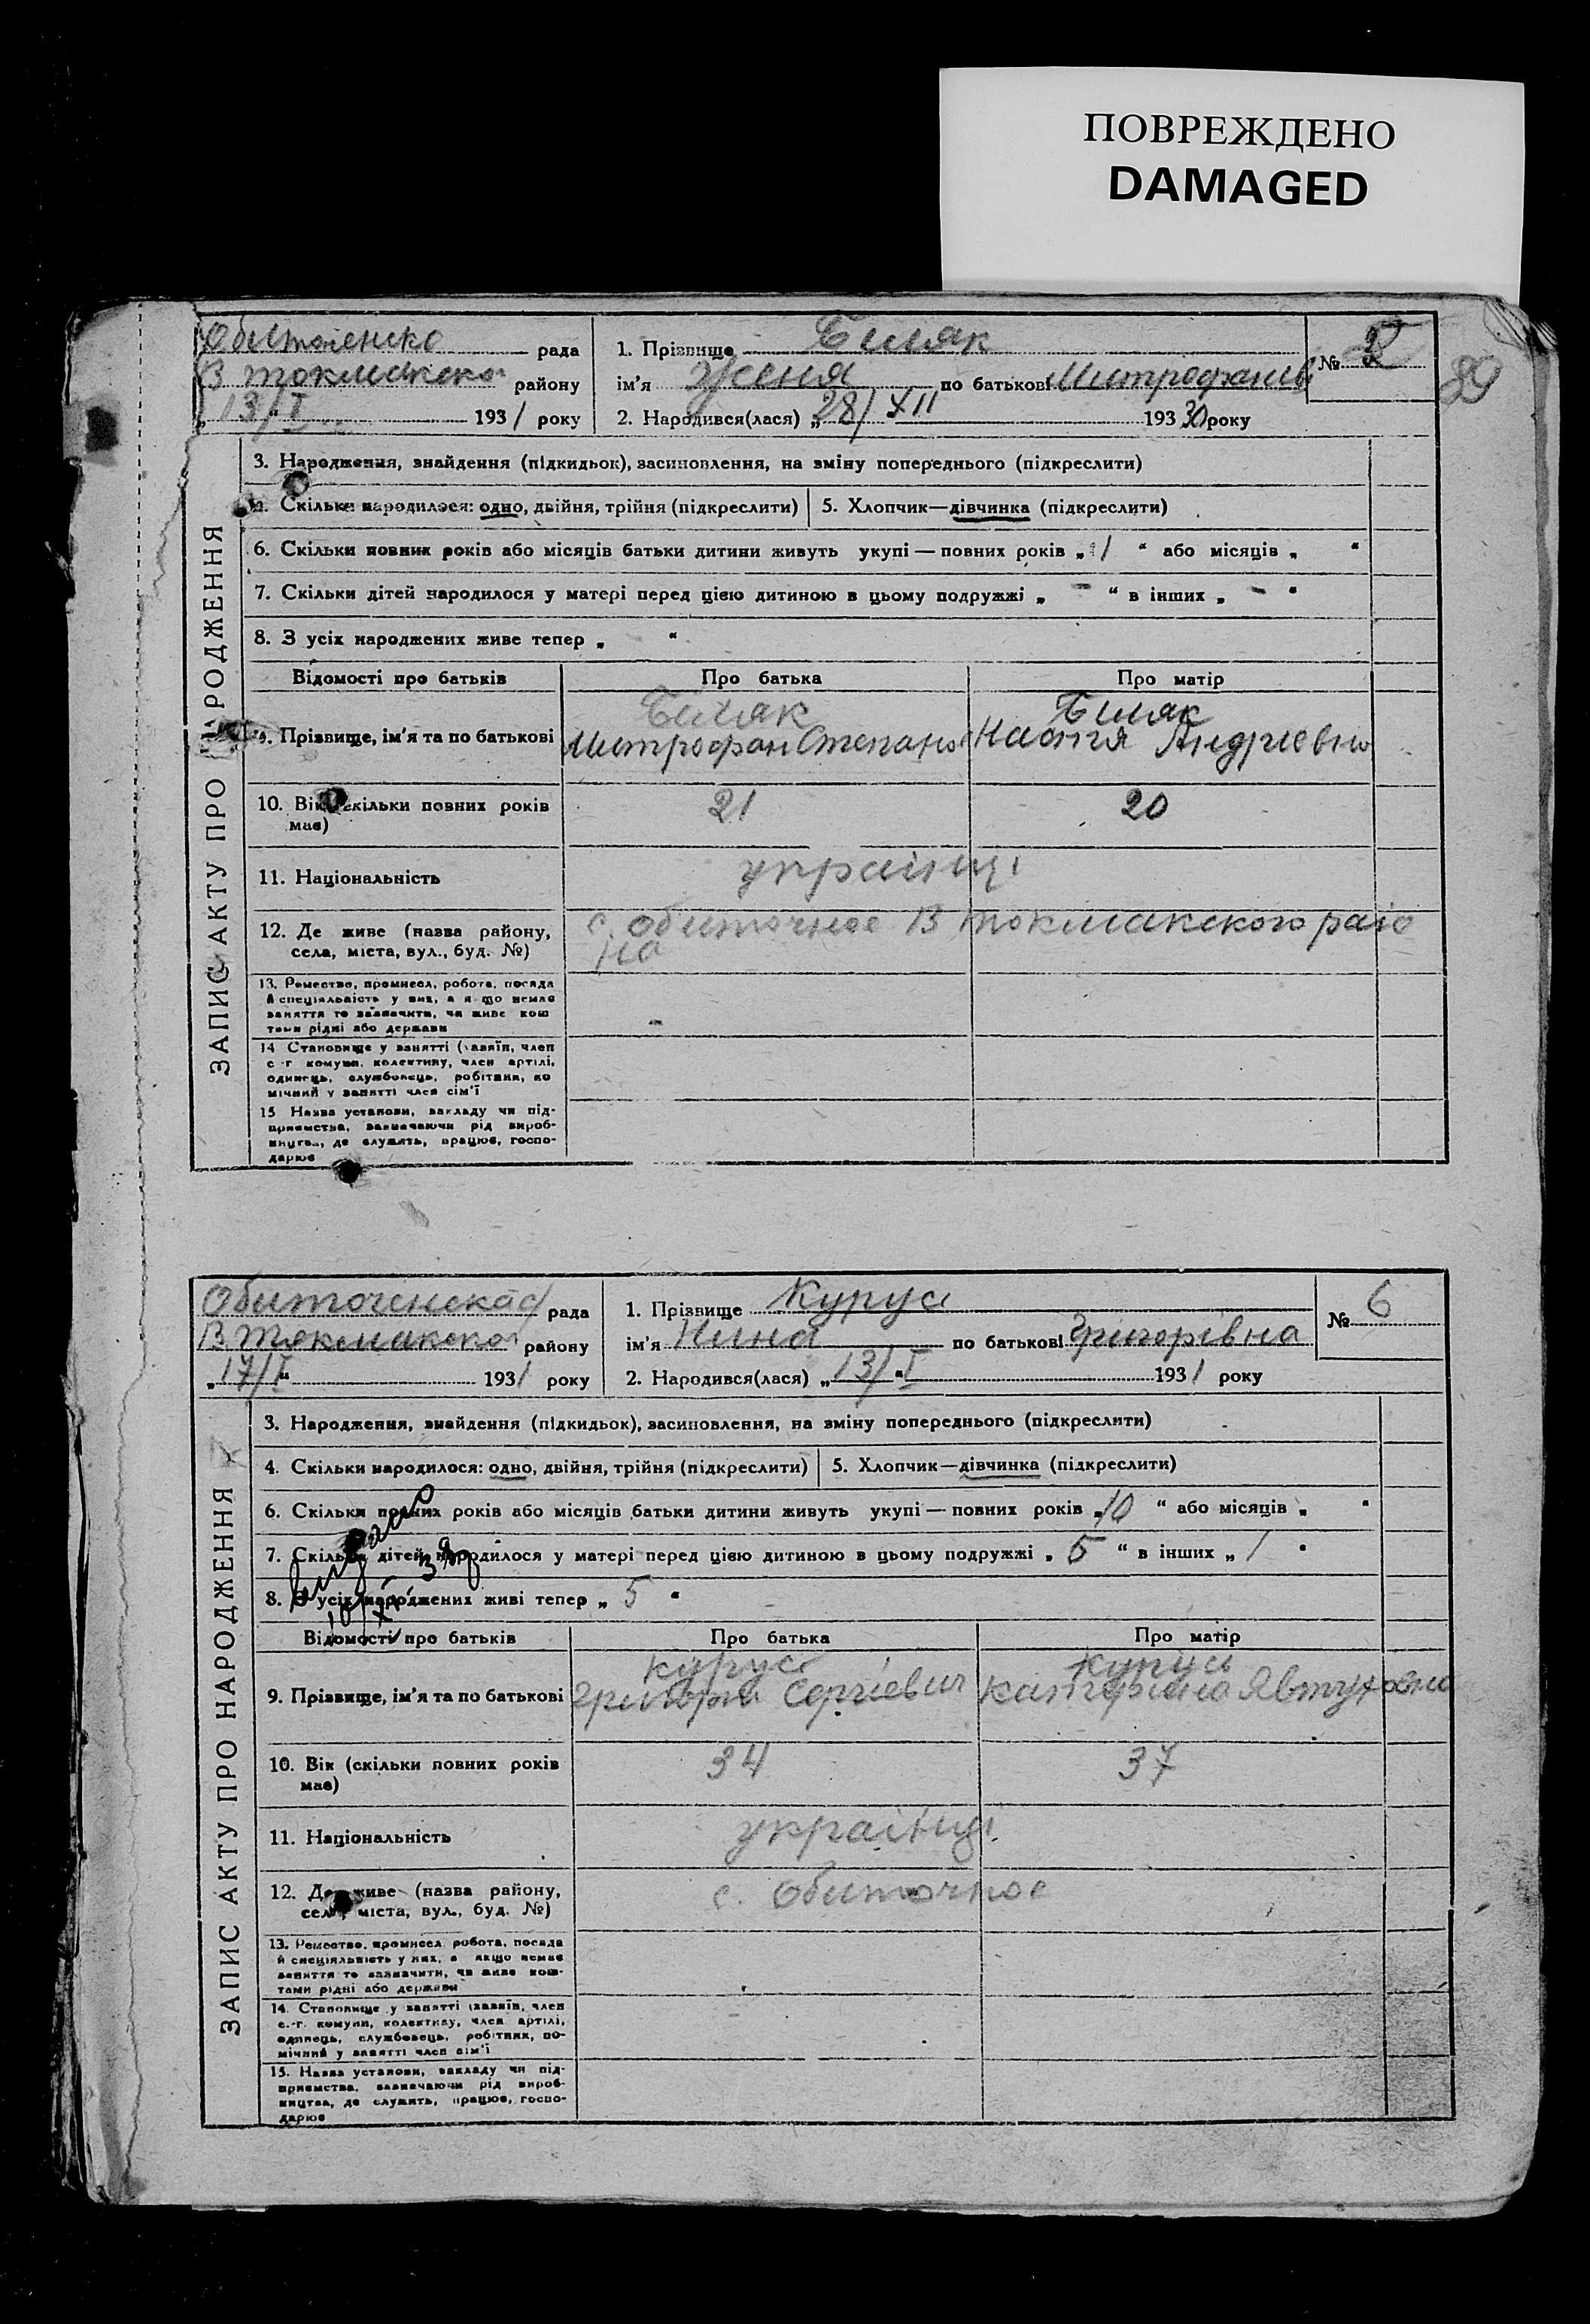 ПОВРЕЖДЕНО
DAMAGED
89
Обиточенско рада
В Токмакской району
„13/I“ 1931 року
1. Прізвище Биляк
ім'я Женя по батькові Митрофанів
2. Народився(лася) „28/XII 1930 року
№
ЗАПИС АКТУ ПРО НАРОДЖЕННЯ
3. Народження, знайдення (підкидьок), засиновлення, на зміну попереднього (підкреслити)
4. Скільки народилося: одно, двійня, трійня (підкреслити) 5. Хлопчик—дівчинка (підкреслити)
6. Скільки повних років або місяців батьки дитини живуть укупі — повних років „1“ або місяців „ “
7. Скільки дітей народилося у матері перед цією дитиною в цьому подружжі „ - “ в інших „ - “
8. З усіх народжених живе тепер „ “
Відомості про батьків Про батька Про матір
Биляк Биляк
9. Прізвище, ім'я та по батькові Митрофан Степанов Настя Андріевна
10. Вік (скільки повних років має) 21 20
11. Національність українці
12. Де живе (назва району, села, міста, вул., буд. №) с. Обиточное В Токмакского раіо
на
13. Ремество, промисел, робота, посада
й спеціяльність у них, а якщо немає
заняття то зазначити, чи живе кош
тами рідні або держави
14 Становище у занятті (хазяїн, член
с-г комуни, колективу, член артілі,
одинець, службовець, робітник, по
мічний у занятті член сім'ї
15 Назва установи, закладу чи під-
приємства, зазначаючи рід вироб-
ництва, де служить, працює, госпо-
дарює
Обиточенская рада
В Токмакской району
„17/I“ 1931 року
1. Прізвище Курус
ім'я Нина по батькові Григорівна
2. Народився(лася) „13/I“ 1931 року
№ 6
ЗАПИС АКТУ ПРО НАРОДЖЕННЯ
3. Народження, знайдення (підкидьок), засиновлення, на зміну попереднього (підкреслити)
4. Скільки народилося: одно, двійня, трійня (підкреслити) 5. Хлопчик—дівчинка (підкреслити)
6. Скільки повних років або місяців батьки дитини живуть укупі — повних років „10“ або місяців „ “
7. Скільки дітей народилося у матері перед цією дитиною в цьому подружжі „5“ в інших „1“
8. З усіх народжених живі тепер „5“
Відомості про батьків Про батька Про матір
Курус Курус
9. Прізвище, ім'я та по батькові Григорій Сергіевич Катерина Явтуховна
10. Вік (скільки повних років має) 34 37
11. Національність українці
12. Де живе (назва району, села, міста, вул., буд. №) с. Обиточное
13. Ремество, промисел, робота, посада
й спеціяльність у них, а якщо немає
заняття то зазначити, чи живе кош-
тами рідні або держави
14. Становище у занятті (хазяїн, член
с.-г. комуни, колективу, член артілі,
одинець, службовець, робітник, по-
мічний у занятті член сім'ї
15. Назва установи, закладу чи під-
приємства, зазначаючи рід вироб-
ництва, де служить, працює, госпо-
дарює